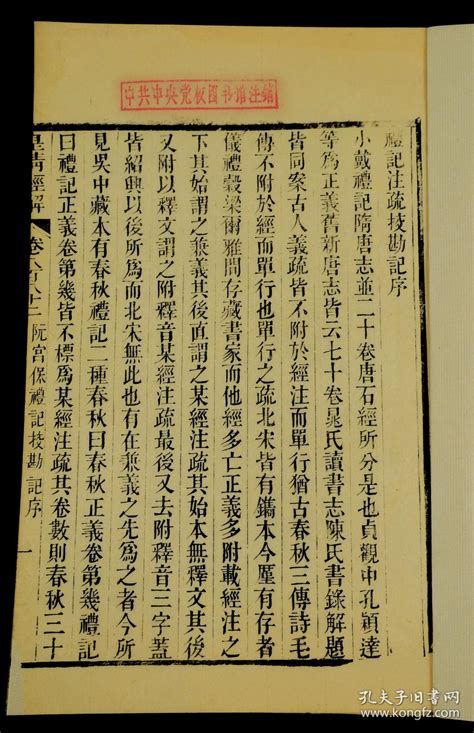 中共中央党校图书馆注销
禮記注疏挍勘記序
小戴禮記隋唐志並二十卷唐石經所分是也貞觀中孔穎達
等爲正義舊新唐志皆云七十卷晁氏讀書志陳氏書錄解題
皆同案古人義疏皆不附於經注而單行猶古春秋三傳詩毛
傳不附於經而單行也單行之疏北宋皆有鐫本今厪有存者
儀禮穀梁爾雅間存藏書家而他經多亡正義多附載經注之
下其始謂之兼義其後直謂之某經注疏其始本無釋文其後
又附以釋文謂之附釋音某經注疏最後又去附釋音三字蓋
皆紹興以後所爲而北宋無此也有在兼義之先爲之者今所
見吳中藏本有春秋禮記二種春秋曰春秋正義卷第幾禮記
曰禮記正義卷第幾皆不標爲某經注疏其卷數則春秋三十
皇清經解 卷八百八十二 阮宮保禮記挍勘記序 一
孔夫子旧书网
www.kongfz.com